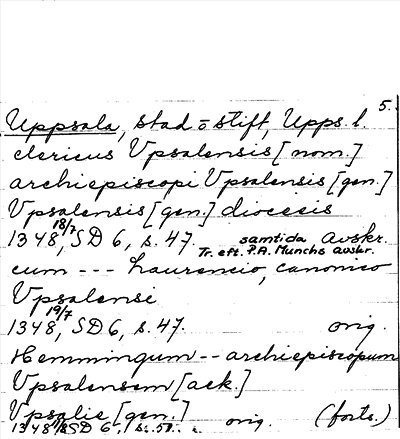 5.
Uppsala, stad o stift, Upps. l.
clericus Vpsalensis [nom.]
archiepiscopi Vpsalensis [gen.]
Vpsalensis [gen.] diocesis
1348 18/7, SD 6, s. 47. samtida Avskr.
Tr. eft. P.A. Munchs avskr.
cum --- Laurencio, canonico
Vpsalensi
1348 19/7, SD 6, s. 47. orig.
Hemmingum -- archiepiscopum
Vpsalensem [ack.]
Vpsalie [gen.]
1348 SD 6, s. 51. orig. (forts.)